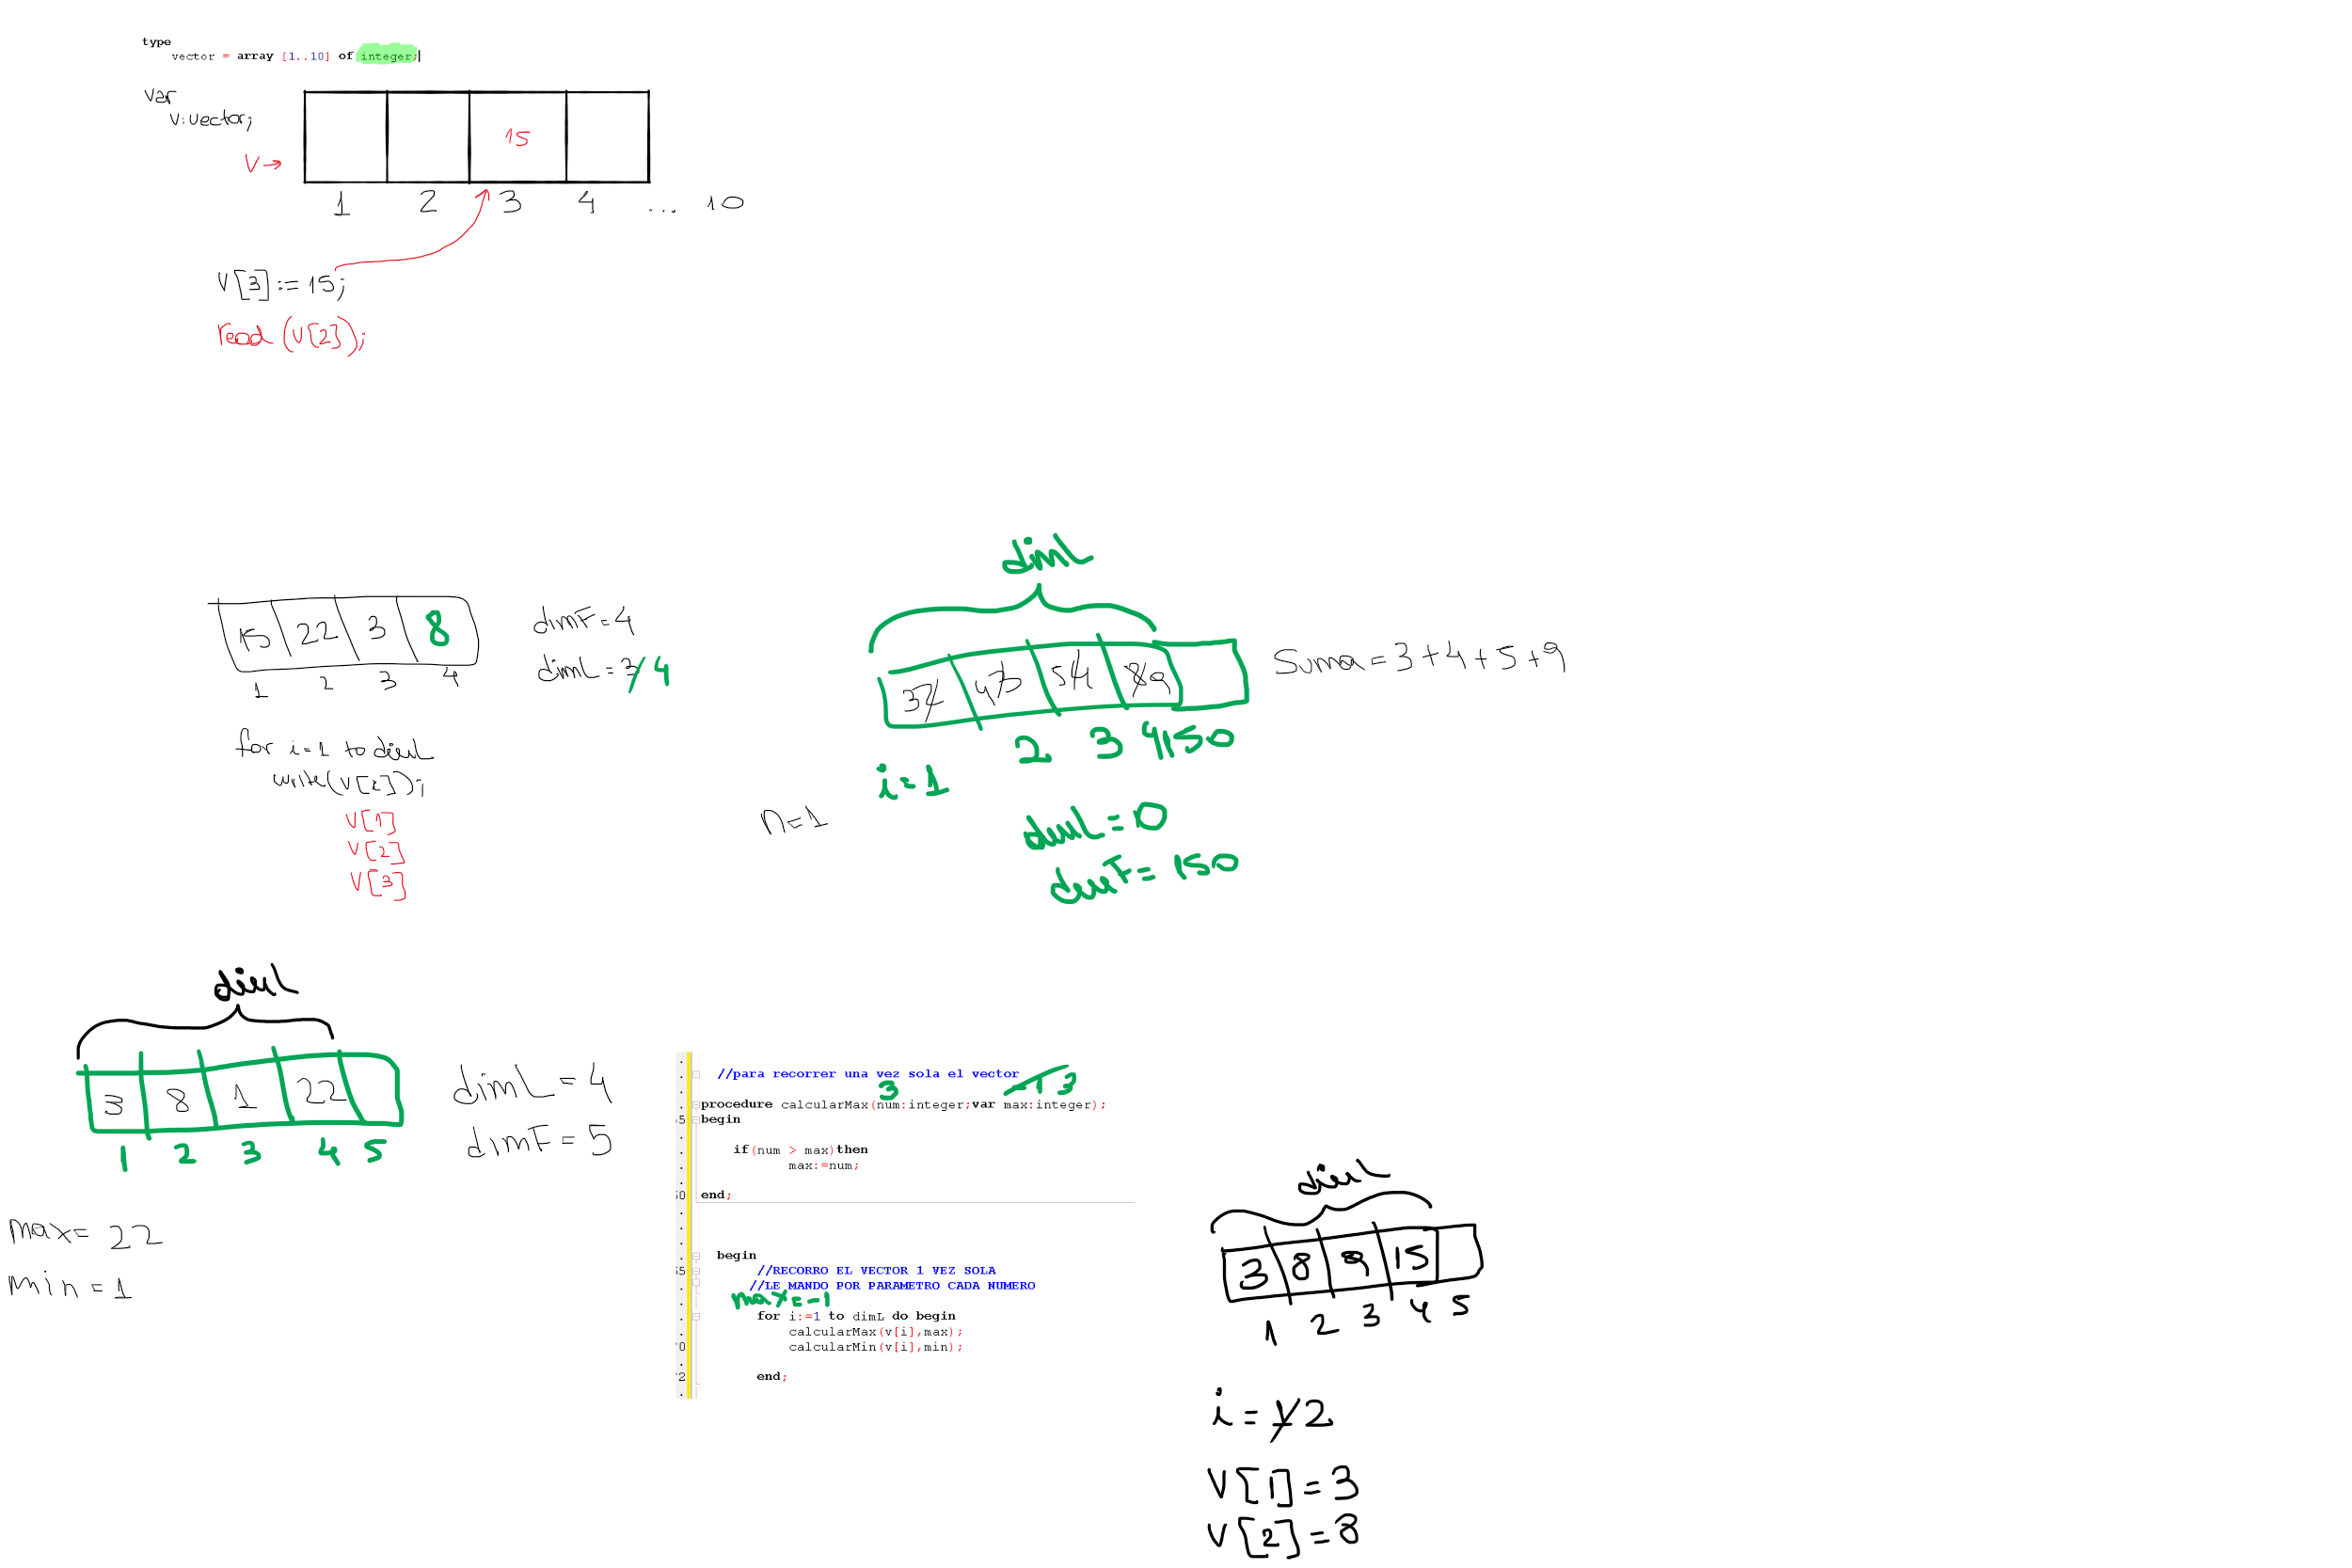 type
vector = array [1..10] of integer;
var
v:vector;
V →
15
1 2 3 4 ... 10
V[3]:=15;
read (v[2]);
15 22 3 8
1 2 3 4
dimF=4
dimL=3 4
for i=1 to dimL
write(v[i]);
V[1]
V[2]
V[3]
dimL
Suma=3+4+5+9
2 3 4 150
i=1
n=1
dimL=0
dimF=150
dimL
3 8 1 22
1 2 3 4 5
dimL=4
dimF=5
max= 22
min=1
//para recorrer una vez sola el vector
3 -1 3
procedure calcularMax(num:integer;var max:integer);
begin
if(num > max)then
max:=num;
end;
begin
//RECORRO EL VECTOR 1 VEZ SOLA
//LE MANDO POR PARAMETRO CADA NUMERO
max=-1
for i:=1 to dimL do begin
calcularMax(v[i],max);
calcularMin(v[i],min);
end;
dimL
3 8 9 15
1 2 3 4 5
i=1 2
V[1]=3
V[2]=8